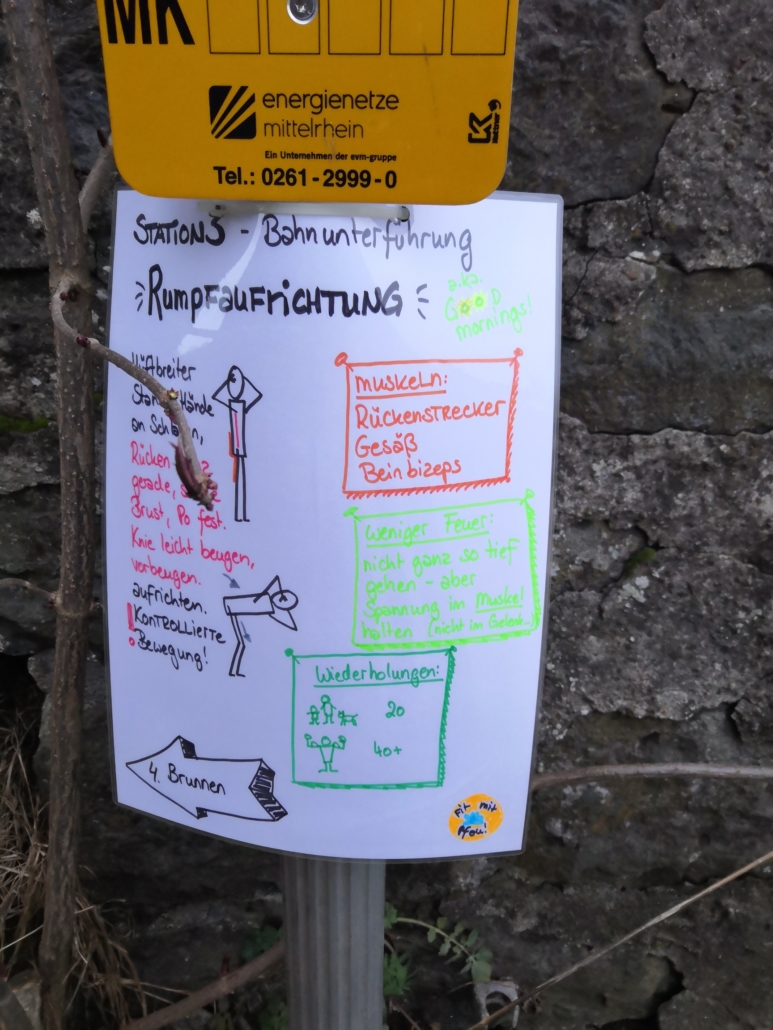 MK
energienetze
mittelrhein
Ein Unternehmen der evm-gruppe
Tel.: 0261-2999-0
STATION 3 - Bahnunterführung
RUMPFAUFRICHTUNG
a.k.a.
GOOD
mornings!
Hüftbreiter
Hände
an
Rücken
gerade,
Brust, Po fest.
Knie leicht beugen,
vorbeugen.
aufrichten.
! KONTROLLIERTE
Bewegung!
MUSKELN:
RÜCKENSTRECKER
Gesäß
Beinbizeps
weniger Feuer:
nicht ganz so tief
gehen - aber
Spannung im Muskel
halten (nicht im
Wiederholungen:
20
40+
4. Brunnen
Fit mit
Pfau!